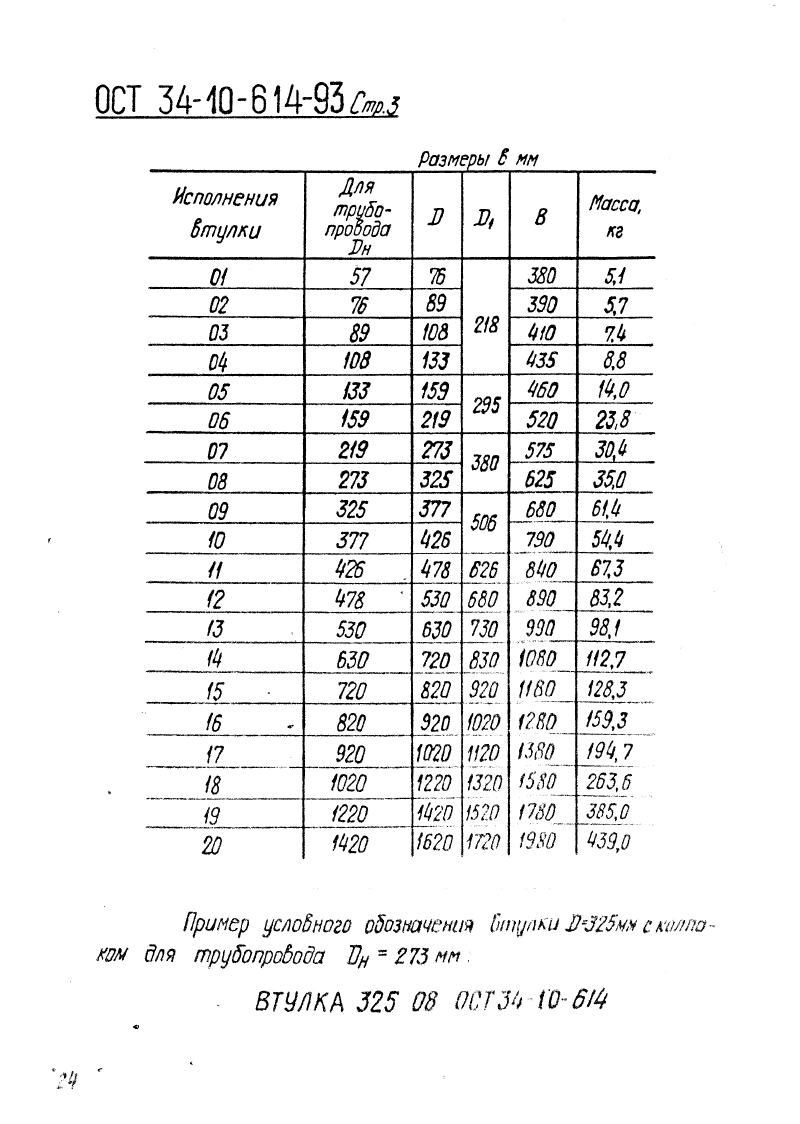 ОСТ 34-10-614-93 Стр.3
Размеры в мм
Исполнения втулки | Для трубо-провода Dн | D | D₁ | В | Масса, кг
01 | 57 | 76 | 218 | 380 | 5,1
02 | 76 | 89 | 390 | 5,7
03 | 89 | 108 | 410 | 7,4
04 | 108 | 133 | 435 | 8,8
05 | 133 | 159 | 295 | 460 | 14,0
06 | 159 | 219 | 520 | 23,8
07 | 219 | 273 | 380 | 575 | 30,4
08 | 273 | 325 | 625 | 35,0
09 | 325 | 377 | 506 | 680 | 61,4
10 | 377 | 426 | 790 | 54,4
11 | 426 | 478 | 626 | 840 | 67,3
12 | 478 | 530 | 680 | 890 | 83,2
13 | 530 | 630 | 730 | 990 | 98,1
14 | 630 | 720 | 830 | 1080 | 112,7
15 | 720 | 820 | 920 | 1180 | 128,3
16 | 820 | 920 | 1020 | 1280 | 159,3
17 | 920 | 1020 | 1120 | 1380 | 194,7
18 | 1020 | 1220 | 1320 | 1580 | 263,6
19 | 1220 | 1420 | 1520 | 1780 | 385,0
20 | 1420 | 1620 | 1720 | 1980 | 439,0
Пример условного обозначения втулки D=325мм с колпа-
ком для трубопровода Dн = 273 мм:
ВТУЛКА 325 08 ОСТ 34-10-614
24